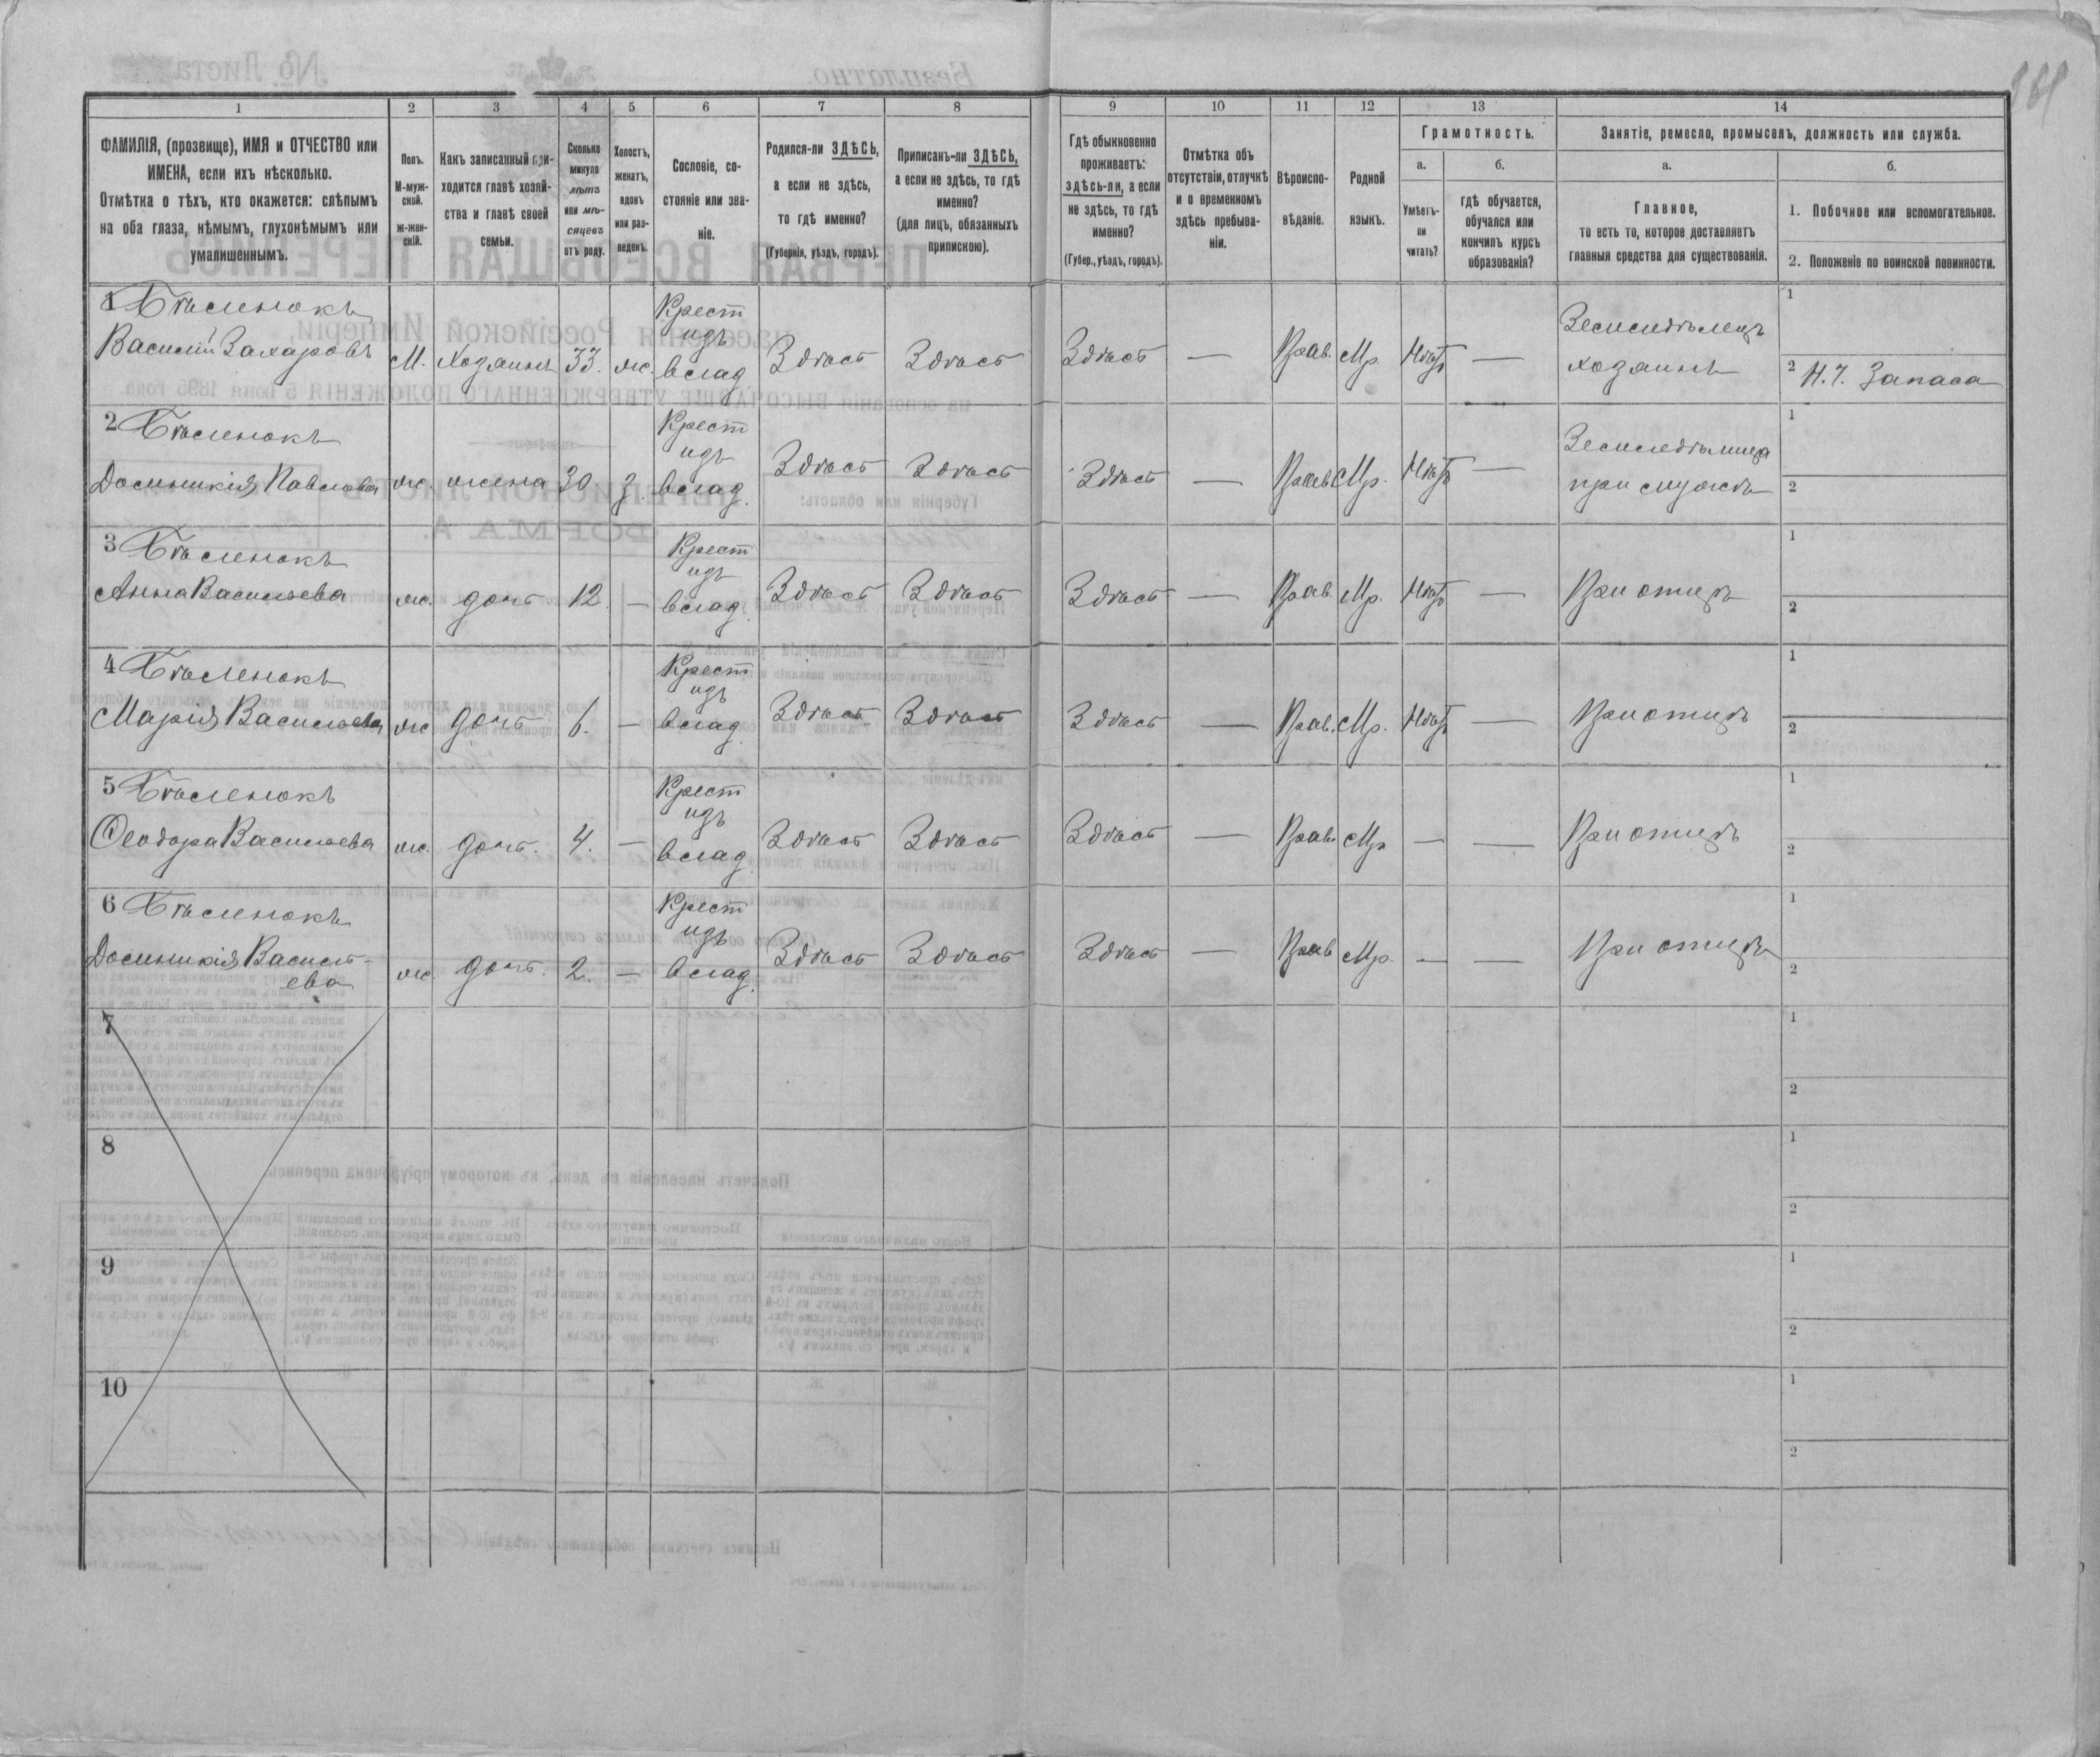 181
1 2 3 4 5 6 7 8 9 10 11 12 13 14
ФАМИЛІЯ, (прозвище), ИМЯ и ОТЧЕСТВО или
ИМЕНА, если ихъ нѣсколько.
Отмѣтка о тѣхъ, кто окажется: слѣпымъ
на оба глаза, нѣмымъ, глухонѣмымъ или
умалишеннымъ.
Полъ.
М-муж-
ской.
ж-жен-
скій.
Какъ записанный при-
ходится главѣ хозяй-
ства и главѣ своей
семьи.
Сколько
минуло
лѣтъ
или мѣ-
сяцевъ
отъ роду.
Холостъ,
женатъ,
вдовъ
или раз-
веденъ.
Сословіе, со-
стояніе или зва-
ніе.
Родился-ли ЗДѢСЬ,
а если не здѣсь,
то гдѣ именно?
(Губернія, уѣздъ, городъ).
Приписанъ-ли ЗДѢСЬ,
а если не здѣсь, то гдѣ
именно?
(для лицъ, обязанныхъ
припискою).
Гдѣ обыкновенно
проживаетъ:
здѣсь-ли, а если
не здѣсь, то гдѣ
именно?
(Губер., уѣздъ, городъ).
Отмѣтка объ
отсутствіи, отлучкѣ
и о временномъ
здѣсь пребыва-
ніи.
Вѣроиспо-
вѣданіе.
Родной
языкъ.
Грамотность.
а.
Умѣетъ-
ли
читать?
б.
гдѣ обучается,
обучался или
кончилъ курсъ
образованія?
Занятіе, ремесло, промыселъ, должность или служба.
а.
Главное,
то есть то, которое доставляетъ
главныя средства для существованія.
б.
1. Побочное или вспомогательное.
2. Положеніе по воинской повинности.
1 Бѣленокъ Крест Земледѣлецъ 1
изъ
Василій Захаровъ М. Хозяинъ 33. ж. влад. Здѣсь Здѣсь Здѣсь — Прав. Мр. Нѣтъ — хозяинъ 2 Н. Ч. Запаса
2 Бѣленокъ Крест Земледѣлица 1
изъ
Домникія Павлова ж. жена 30 з. влад. Здѣсь Здѣсь Здѣсь — Прав. Мр. Нѣтъ — при мужѣ 2
3 Бѣленокъ Крест 1
изъ
Анна Васильева ж. дочь 12. — влад. Здѣсь Здѣсь Здѣсь — Прав. Мр. Нѣтъ — При отцѣ 2
4 Бѣленокъ Крест 1
изъ
Марія Васильева ж дочь 6. — влад. Здѣсь Здѣсь Здѣсь — Прав. Мр. Нѣтъ — При отцѣ 2
5 Бѣленокъ Крест 1
изъ
Ѳеодора Васильева ж. дочь. 4. — влад. Здѣсь Здѣсь Здѣсь — Прав. Мр — — При отцѣ 2
6 Бѣленокъ Крест 1
изъ
Домникія Василь-
ева ж. дочь. 2. — влад. Здѣсь Здѣсь Здѣсь — Прав Мр. — — При отцѣ 2
7 1
2
8 1
2
9 1
2
10 1
2